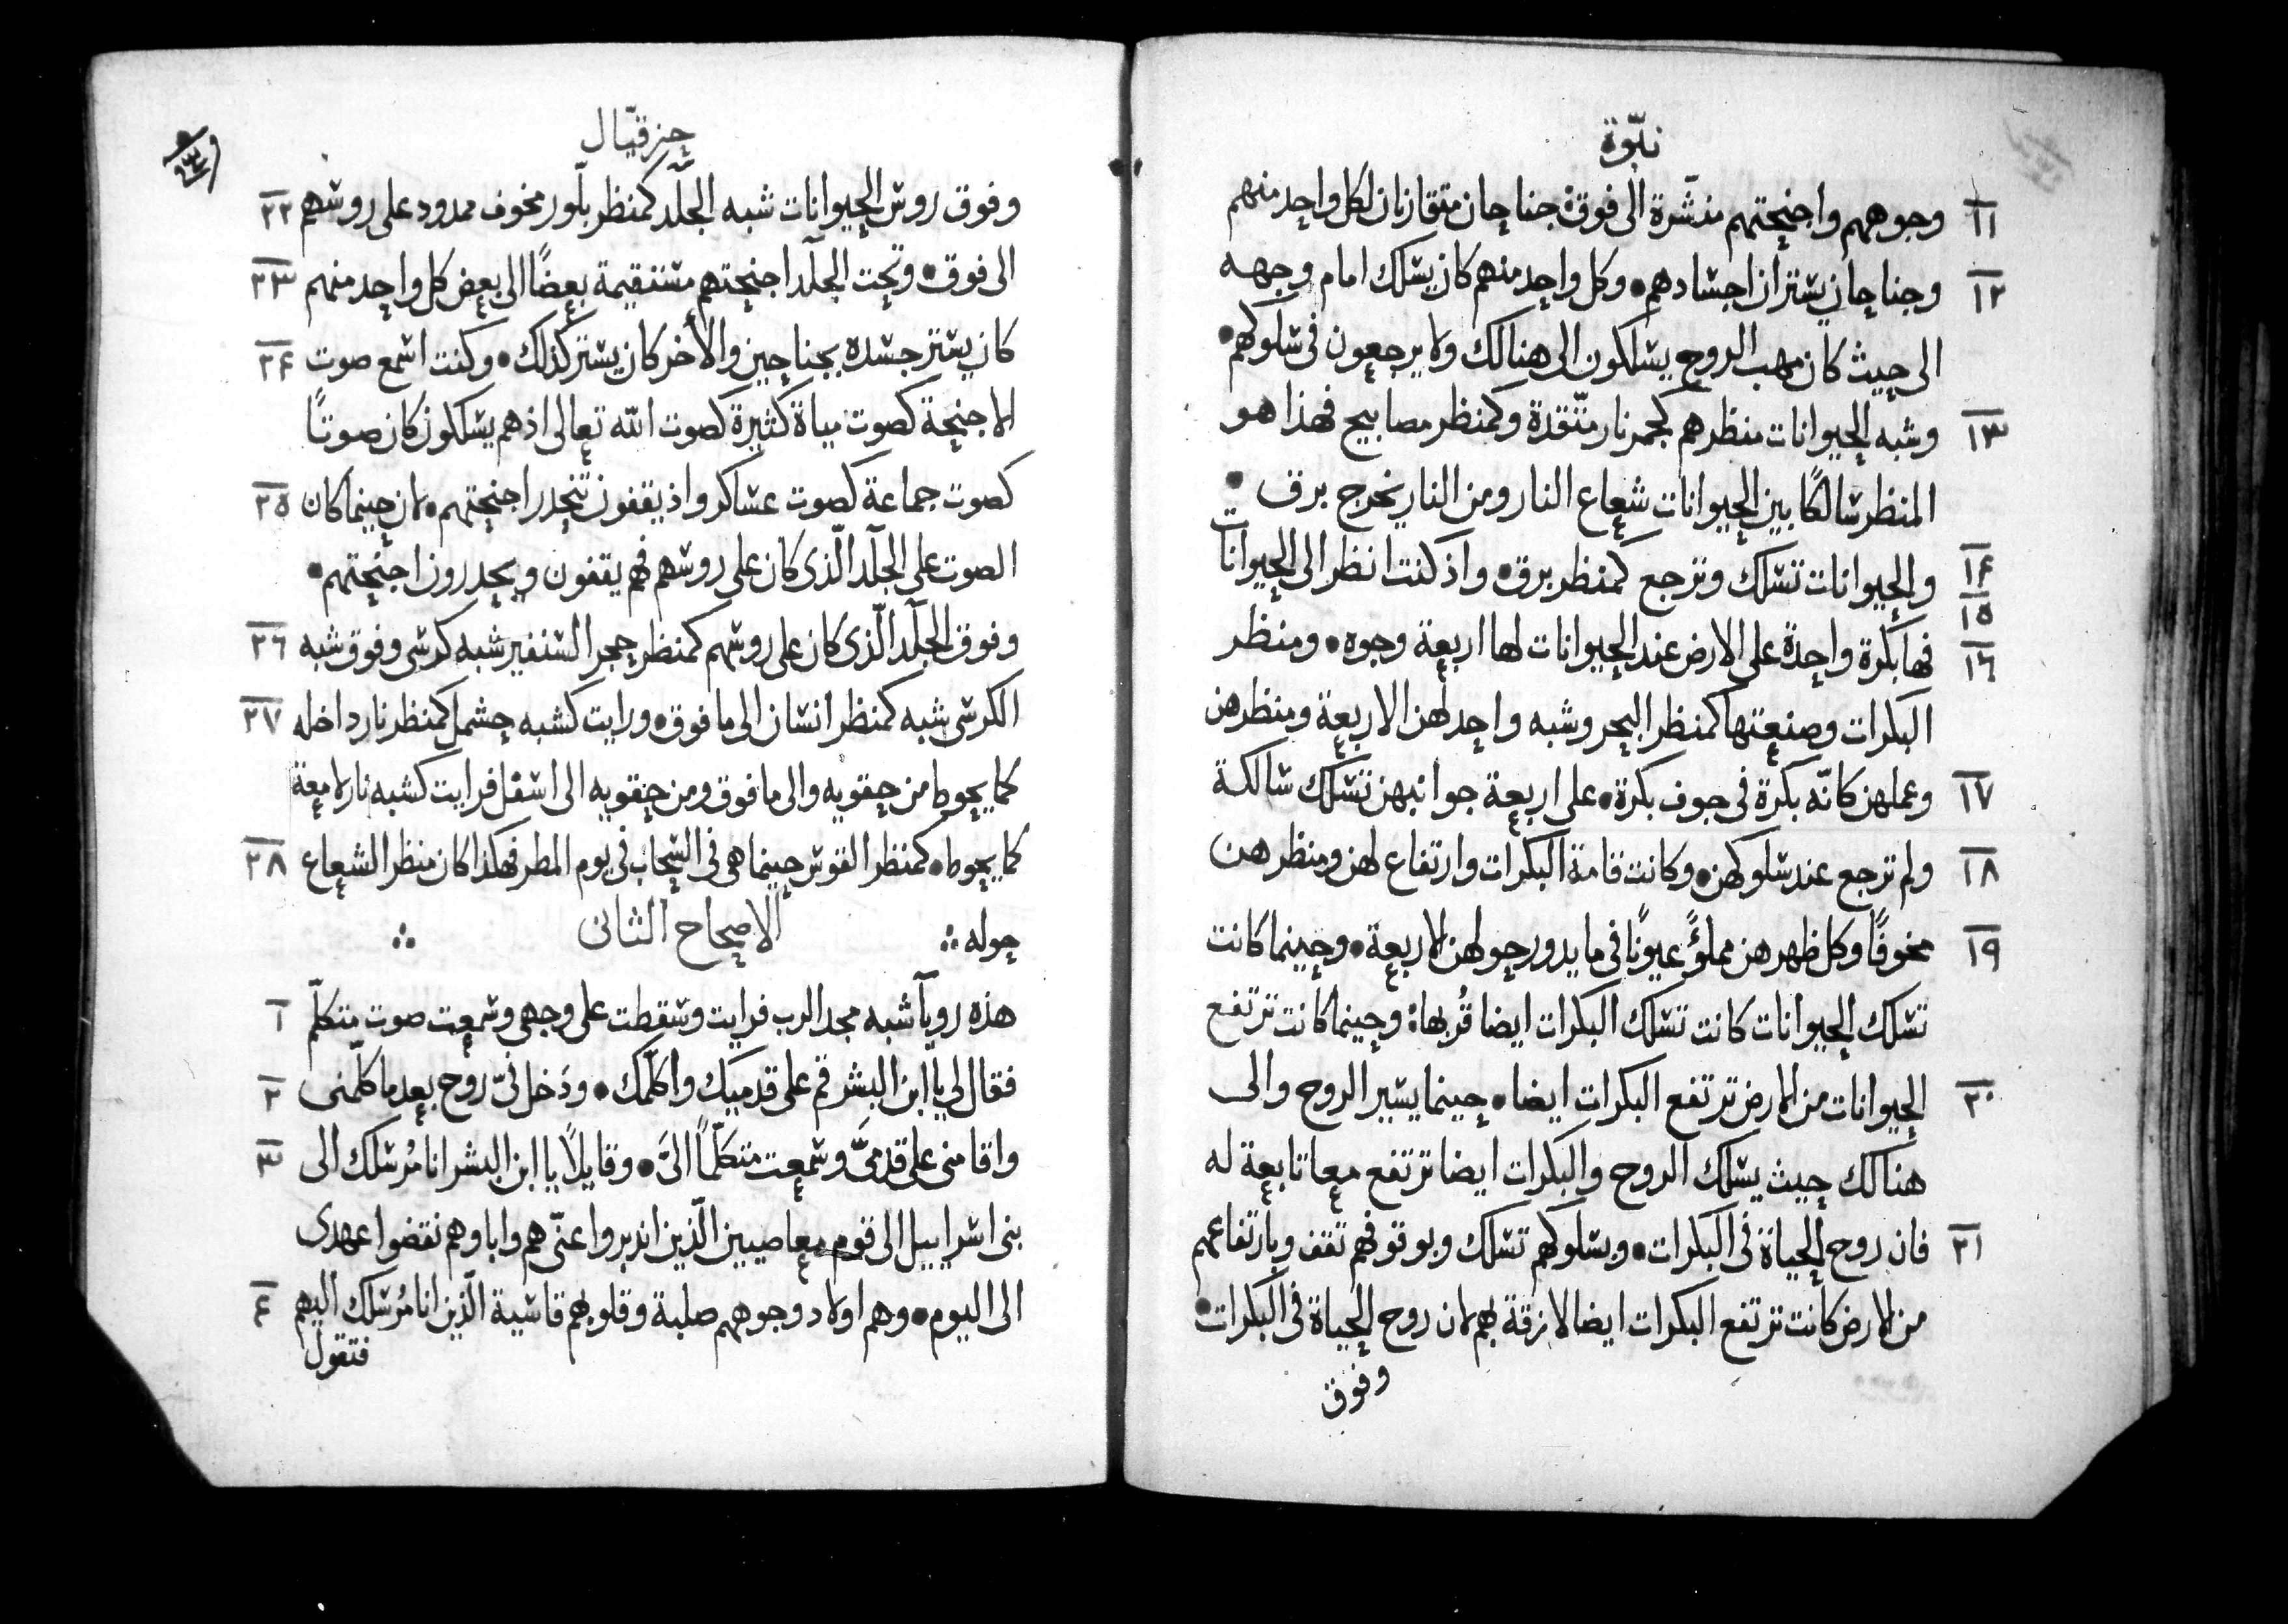 نبّوة
١١ وجوههم واجنحتهم منشّرة الى فوق؛ جناحان متقازنان لكل واحد منهم
١٢ وجناحان يستران اجسادهم• وكل واحد منهم كان يسلك امام وجهه
الى حيث كان مهب الروح يسلكون الى هنالك ولا يرجعون فى سلوكهم•
١٣ وشبه الحيوانات منظرهم كجمر نار متّقدة وكمنظر مصابيح فهذا هو
المنظر سالكًا بين الحيوانات شعاع النار ومن النار يخرج برق •
١٤ ١٥ والحيوانات تسلك وترجع كمنظر برق• واذ كنت انظر الى الحيوانات
١٦ فها بكرة واحدة على الارض عند الحيوانات لها اربعة وجوه• ومنظر
البكرات وصنعتها كمنظر البحر وشبه واحد لهن الاربعة ومنظرهن
١٧ وعملهن كانّه بكرة فى جوف بكرة• على اربعة جوانبهن تسلك سالكة
١٨ ولم ترجع عند سلوكهن• وكانت قامة البكرات وارتفاع لهن ومنظر هن
١٩ مخوفًا وكل ظهر هن مملؤً عيونًا فى ما يدور حولهن الاربعة• وحينما كانت
تسلك الحيوانات كانت تسلك البكرات ايضا قُربها؛ وحينما كانت ترتفع
٢٠ الحيوانات من الارض ترتفع البكرات ايضا• حينما يسير الروح والى
هنالك حيث يسلك الروح والبكرات ايضا ترتفع معا تابعة له
٢١ فان روح الحياة فى البكرات• وبسلوكهم تسلك وبوقوفهم تقف وبارتفاعهم
من الارض كانت ترتفع البكرات ايضا لازقة بهم لان روح الحياة فى البكرات•
وفوق
حزقيّال
وفوق روس الحيوانات شبه الجلَد كمنظر بلّور مخوف ممدود على روسهم ٢٢
الى فوق• وتحت الجلَد اجنحتهم مستقيمة بعضًا الى بعض كل واحد منهم ٢٣
كان يستر جسده بجناحين والأخر كان يستر كذلك• وكنت اسمع صوت ٢٤
الاجنحة كصوت مياة كثيرة كصوت الله تعالى اذ هم يسلكون كان صوتًا
كصوت جماعة كصوت عساكر واذ يقفون تنحدر اجنحتهم• لان حينما كان ٢٥
الصوت على الجلَد الّذى كان على روسهم فهم يقفون ويحدرون اجنحتهم•
وفوق الجلَد الّذى كان على روسهم كمنظر حجر السنفير شبه كرسى وفوق شبه ٢٦
الكرسى شبه كمنظر انسان الى ما فوق• ورايت كشبه حشمل كمنظر نار داخله ٢٧
كما يحوط من حقويه والى ما فوق ومن حقويه الى اسفل فرايت كشبه نار لامعة
كما يحوط• كمنظر القوس حينما هى فى السّحاب فى يوم المطر فهكذا كان منظر الشعاع ٢٨
حوله ؞ الاصحاح الثانى ؞
هذه روياّ شبه مجد الرب فرايت وسقطت على وجهى وسمعت صوت متكلّم ١
فقال لى يا ابن البشر قم على قدميك واكلّمك• ودَخل فىّ روح بعد ما كلّمنى ٢
واقامنى على قدمىَّ وسمعت متكلّمًا الىَّ• وقايلاً يا ابن البشر انا مُرسلك الى ٣
بنى اسراييل الى قوم معاصيين الّذين اندبروا عنّى هم واباوهم نقضوا عهدى
الى اليوم• وهم اولاد وجوههم صلبة وقلوبهم قاسية الّذين انا مُرسلك اليهم ٤
فتقول